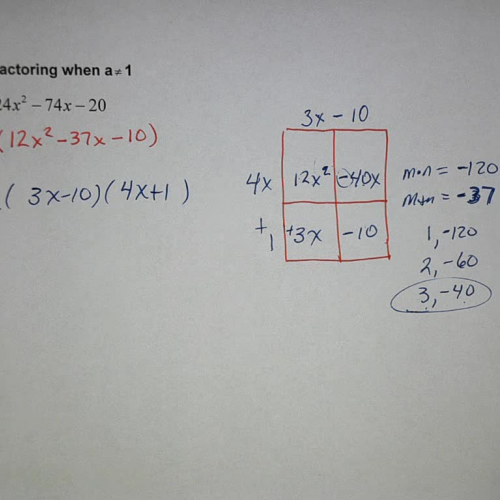 actoring when a≠1
24x² – 74x – 20
(12x²-37x-10)
( 3x-10)(4x+1 )
3x - 10
4x 12x² -40x
+1 +3x -10
m·n = -120
m+n = -37
1, -120
2, -60
3, -40